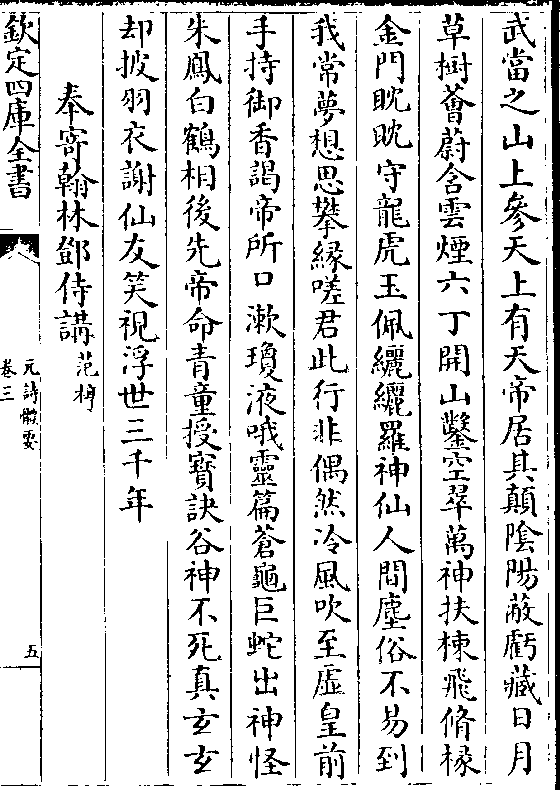 武當之山上參天上有天帝居其顛陰陽蔽虧藏日月
草樹薈蔚含雲煙六丁開山鑿空翠萬神扶棟飛脩椽
金門眈眈守龍虎玉佩纚纚羅神仙人間塵俗不易到
我常夢想思攀縁嗟君此行非偶然冷風吹至虛皇前
手持御香謁帝所口漱瓊液哦靈篇蒼龜巨蛇出神怪
朱鳳白鶴相後先帝命青童授寳訣谷神不死真玄玄
却披羽衣謝仙友笑視浮世三千年
奉寄翰林鄧侍講 范梈
欽定四庫全書
元詩體要
卷三
五